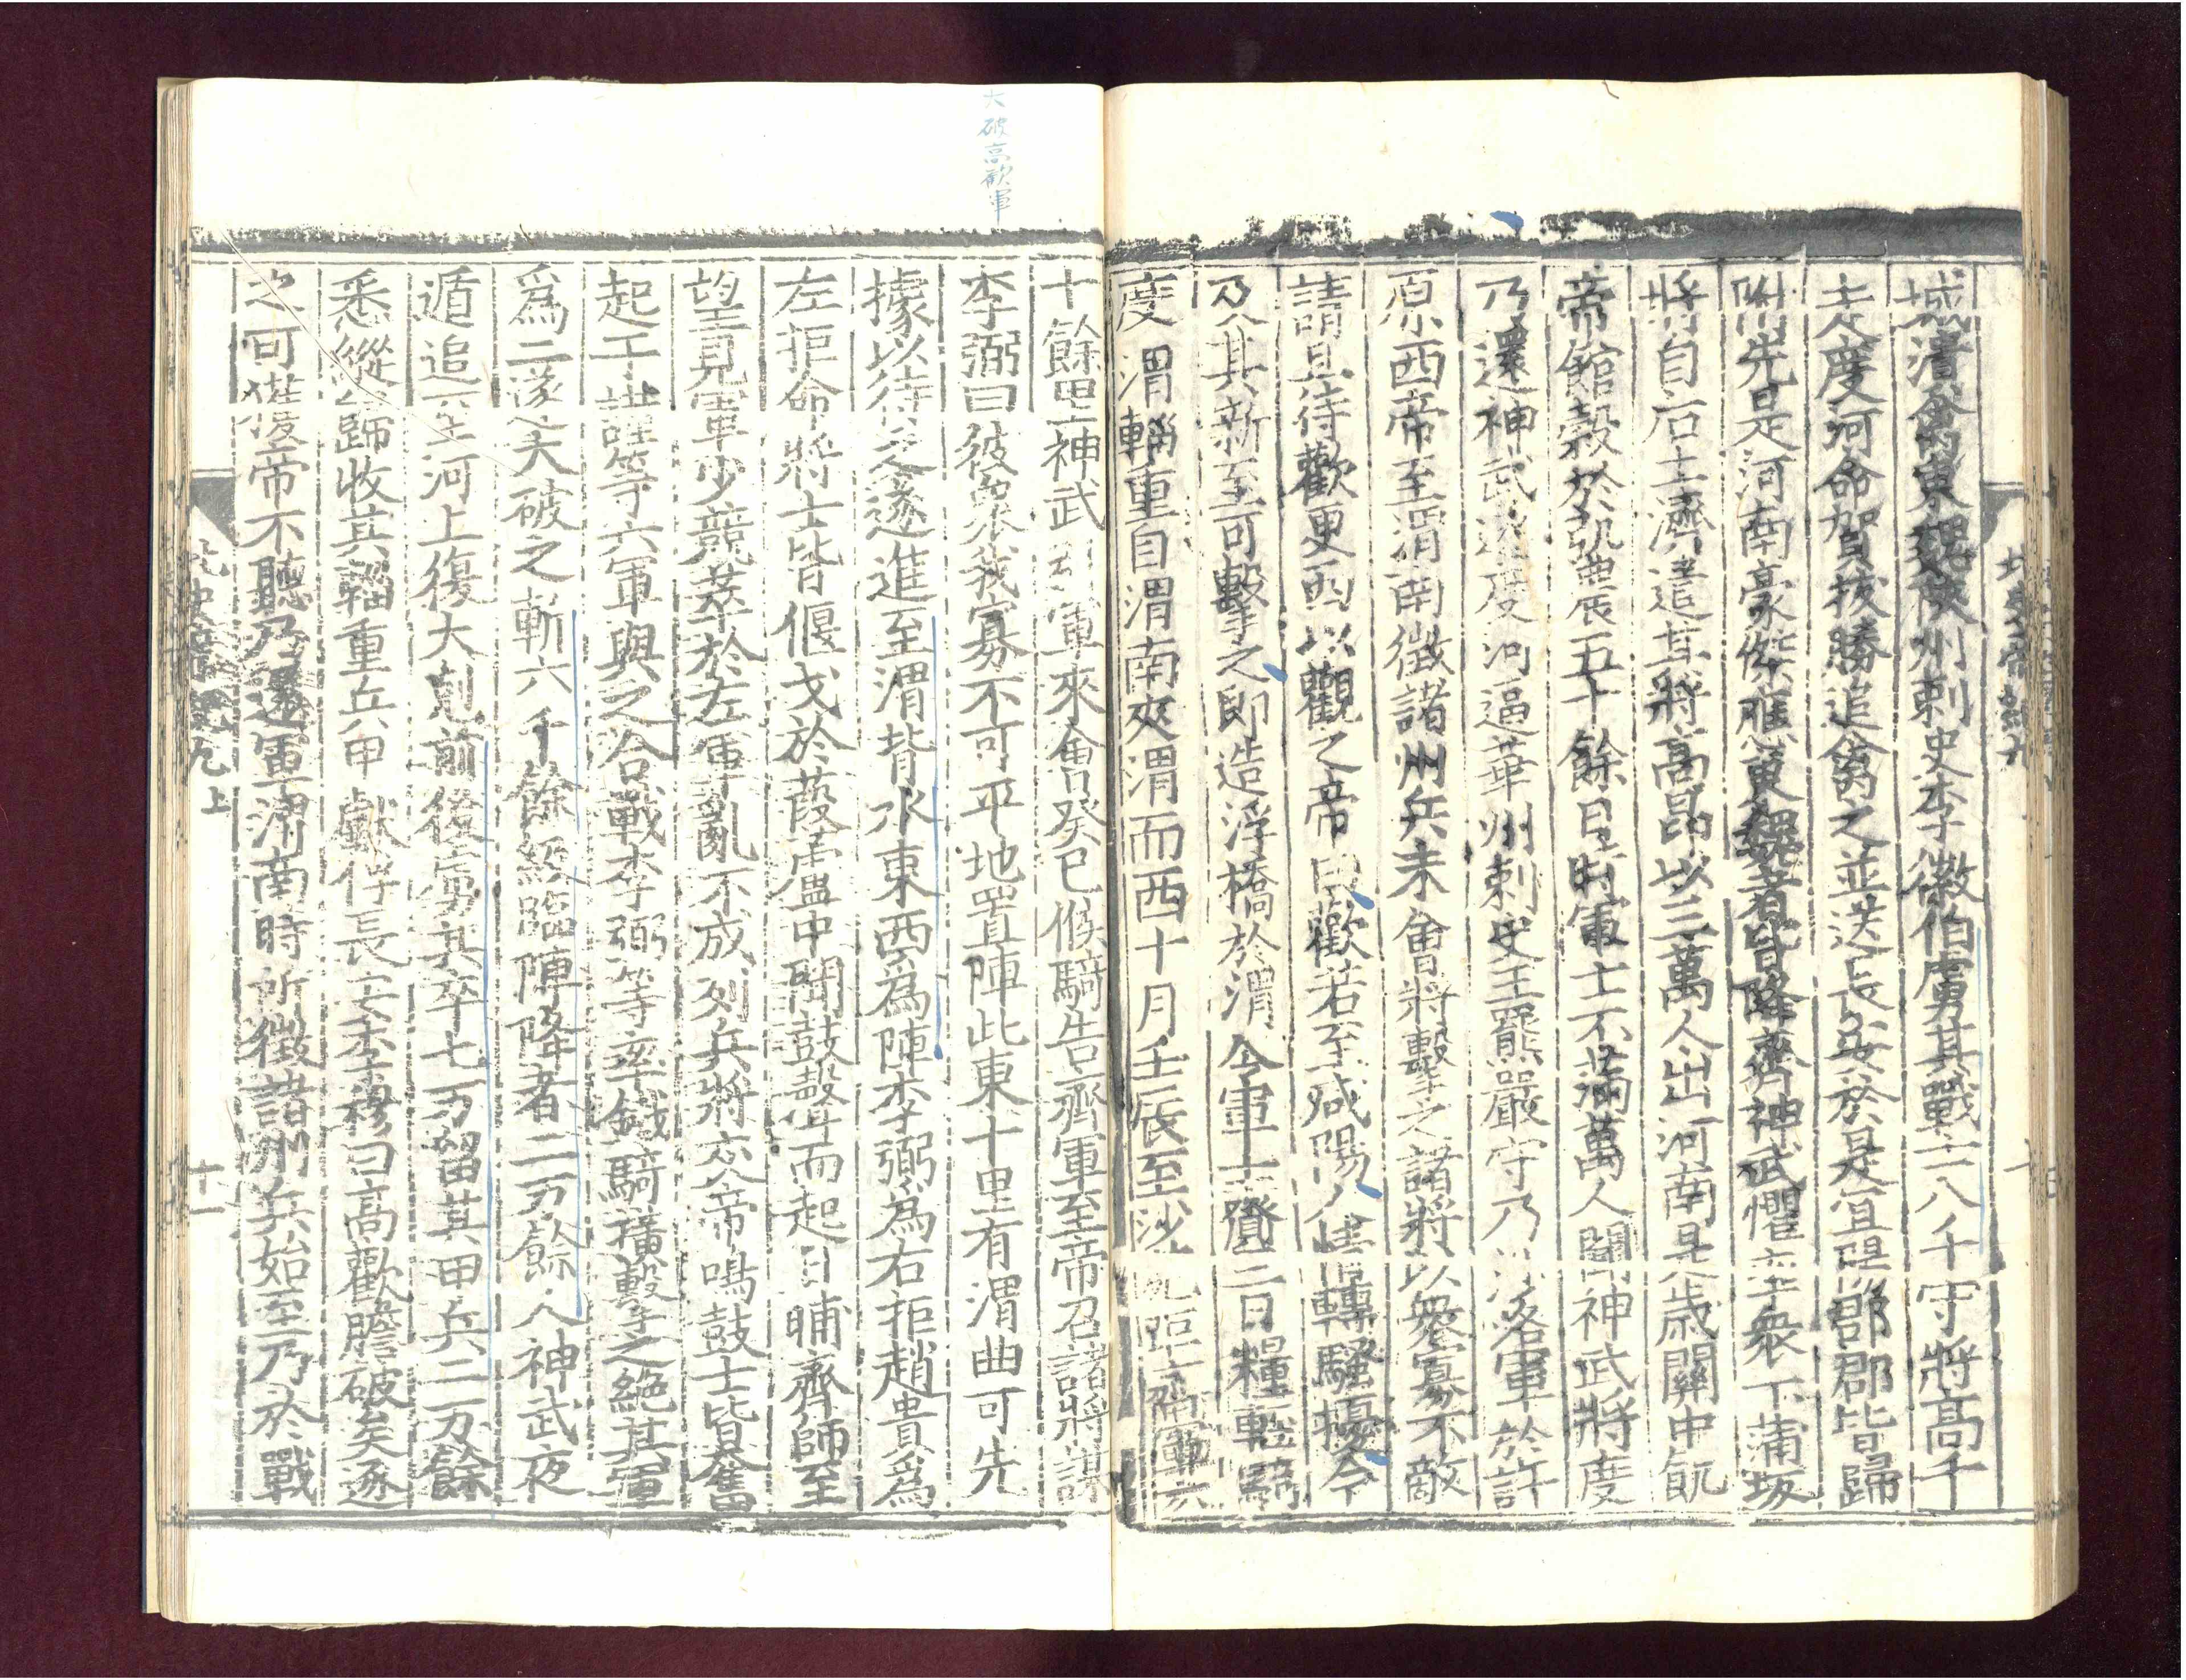 城潰禽東魏陝州刺史李徽伯虜其戰士八千守將高千
走度河命賀拔勝追禽之並送長安於是宜陽邵郡皆歸
附先是河南豪傑應東魏者皆降齊神武懼率衆下蒲坂
將自后土濟遣其將高昂以三萬人出河南是歲關中飢
帝館穀於弘農五十餘日時軍士不滿萬人聞神武將度
乃還神武遂度河逼華州刺史王羆嚴守乃涉洛軍於許
原西帝至渭南徵諸州兵未會將擊之諸將以衆寡不敵
請且待歡更西以觀之帝曰歡若至咸陽人情轉騷擾今
及其新至可擊之即造浮橋於渭令軍士齎三日糧輕騎
度渭輜重自渭南夾渭而西十月壬辰至沙苑距齊軍六
大破高歡軍
十餘里神武引軍來會癸巳候騎告齊軍至帝召諸將謀
李弼曰彼衆我寡不可平地置陣此東十里有渭曲可先
據以待之遂進至渭背水東西爲陣李弼爲右拒趙貴爲
左拒命將士皆偃戈於葭蘆中聞鼓聲而起日晡齊師至
望見軍少競萃於左軍亂不成列兵將交帝鳴鼓士皆奮
起于謹等六軍與之合戰李弼等率鐵騎橫擊之絶其軍
爲二遂大破之斬六千餘級臨陣降者二万餘人神武夜
遁追至河上復大剋前後虜其卒七万留其甲兵二万餘
悉縱歸收其輜重兵甲獻俘長安李穆曰高歡膽破矣逐
之可獲帝不聽乃還軍渭南時所徵諸州兵始至乃於戰
北史帝紀九上
十一